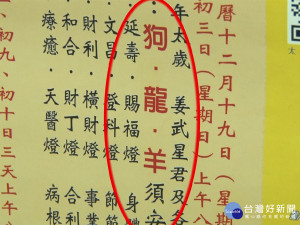 曆十二月十九日(星期
初三日(星期日)上午八
年太歲 姜武星君及各
狗·龍·羊須安
延壽·賜福燈 身體
文昌·登科燈 節節
財利·橫財燈 事業
和合·財丁燈
療癒·天醫燈 病根
初九、初十日三天
台灣好新聞